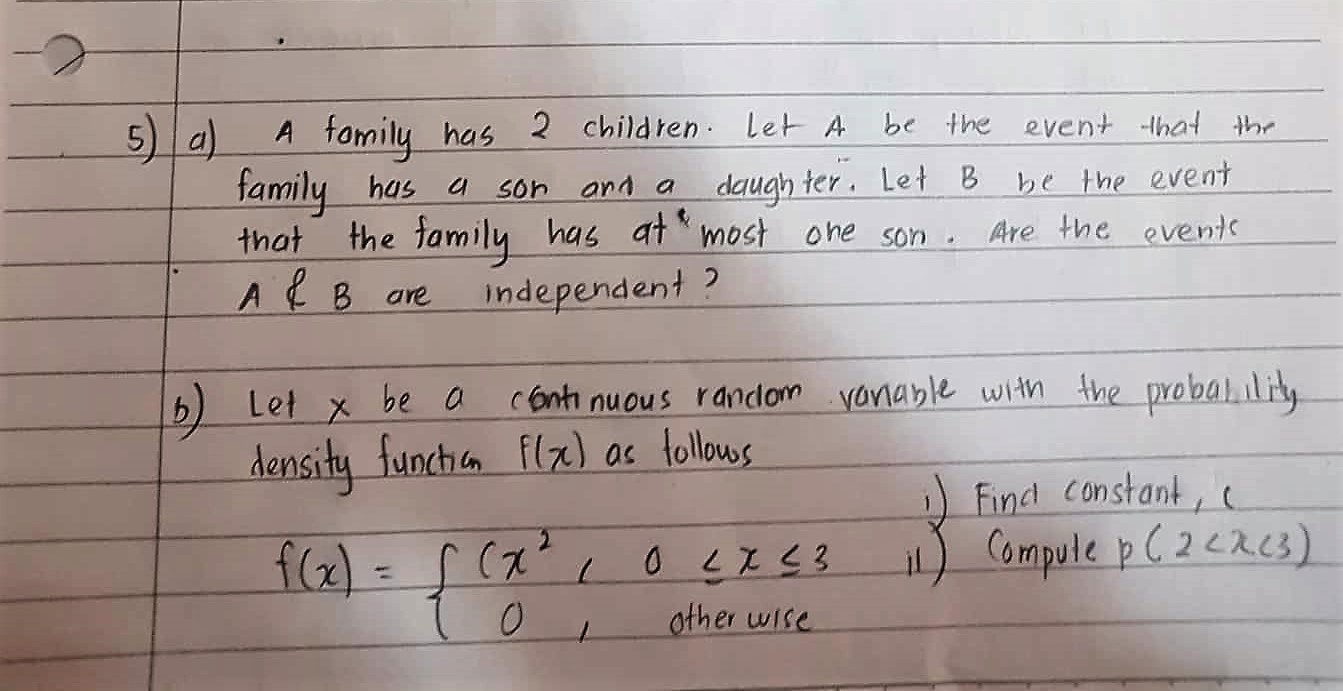 5) a) A family has 2 children. Let A be the event that the
family has a son and a daughter. Let B be the event
that the family has at most one son. Are the events
A & B are independent?
b) Let x be a continuous random variable with the probability
density function f(x) as follows
i) Find constant, c
f(x) = { Cx², 0 ≤ x ≤ 3 ii) Compute p(2<x<3)
0, otherwise